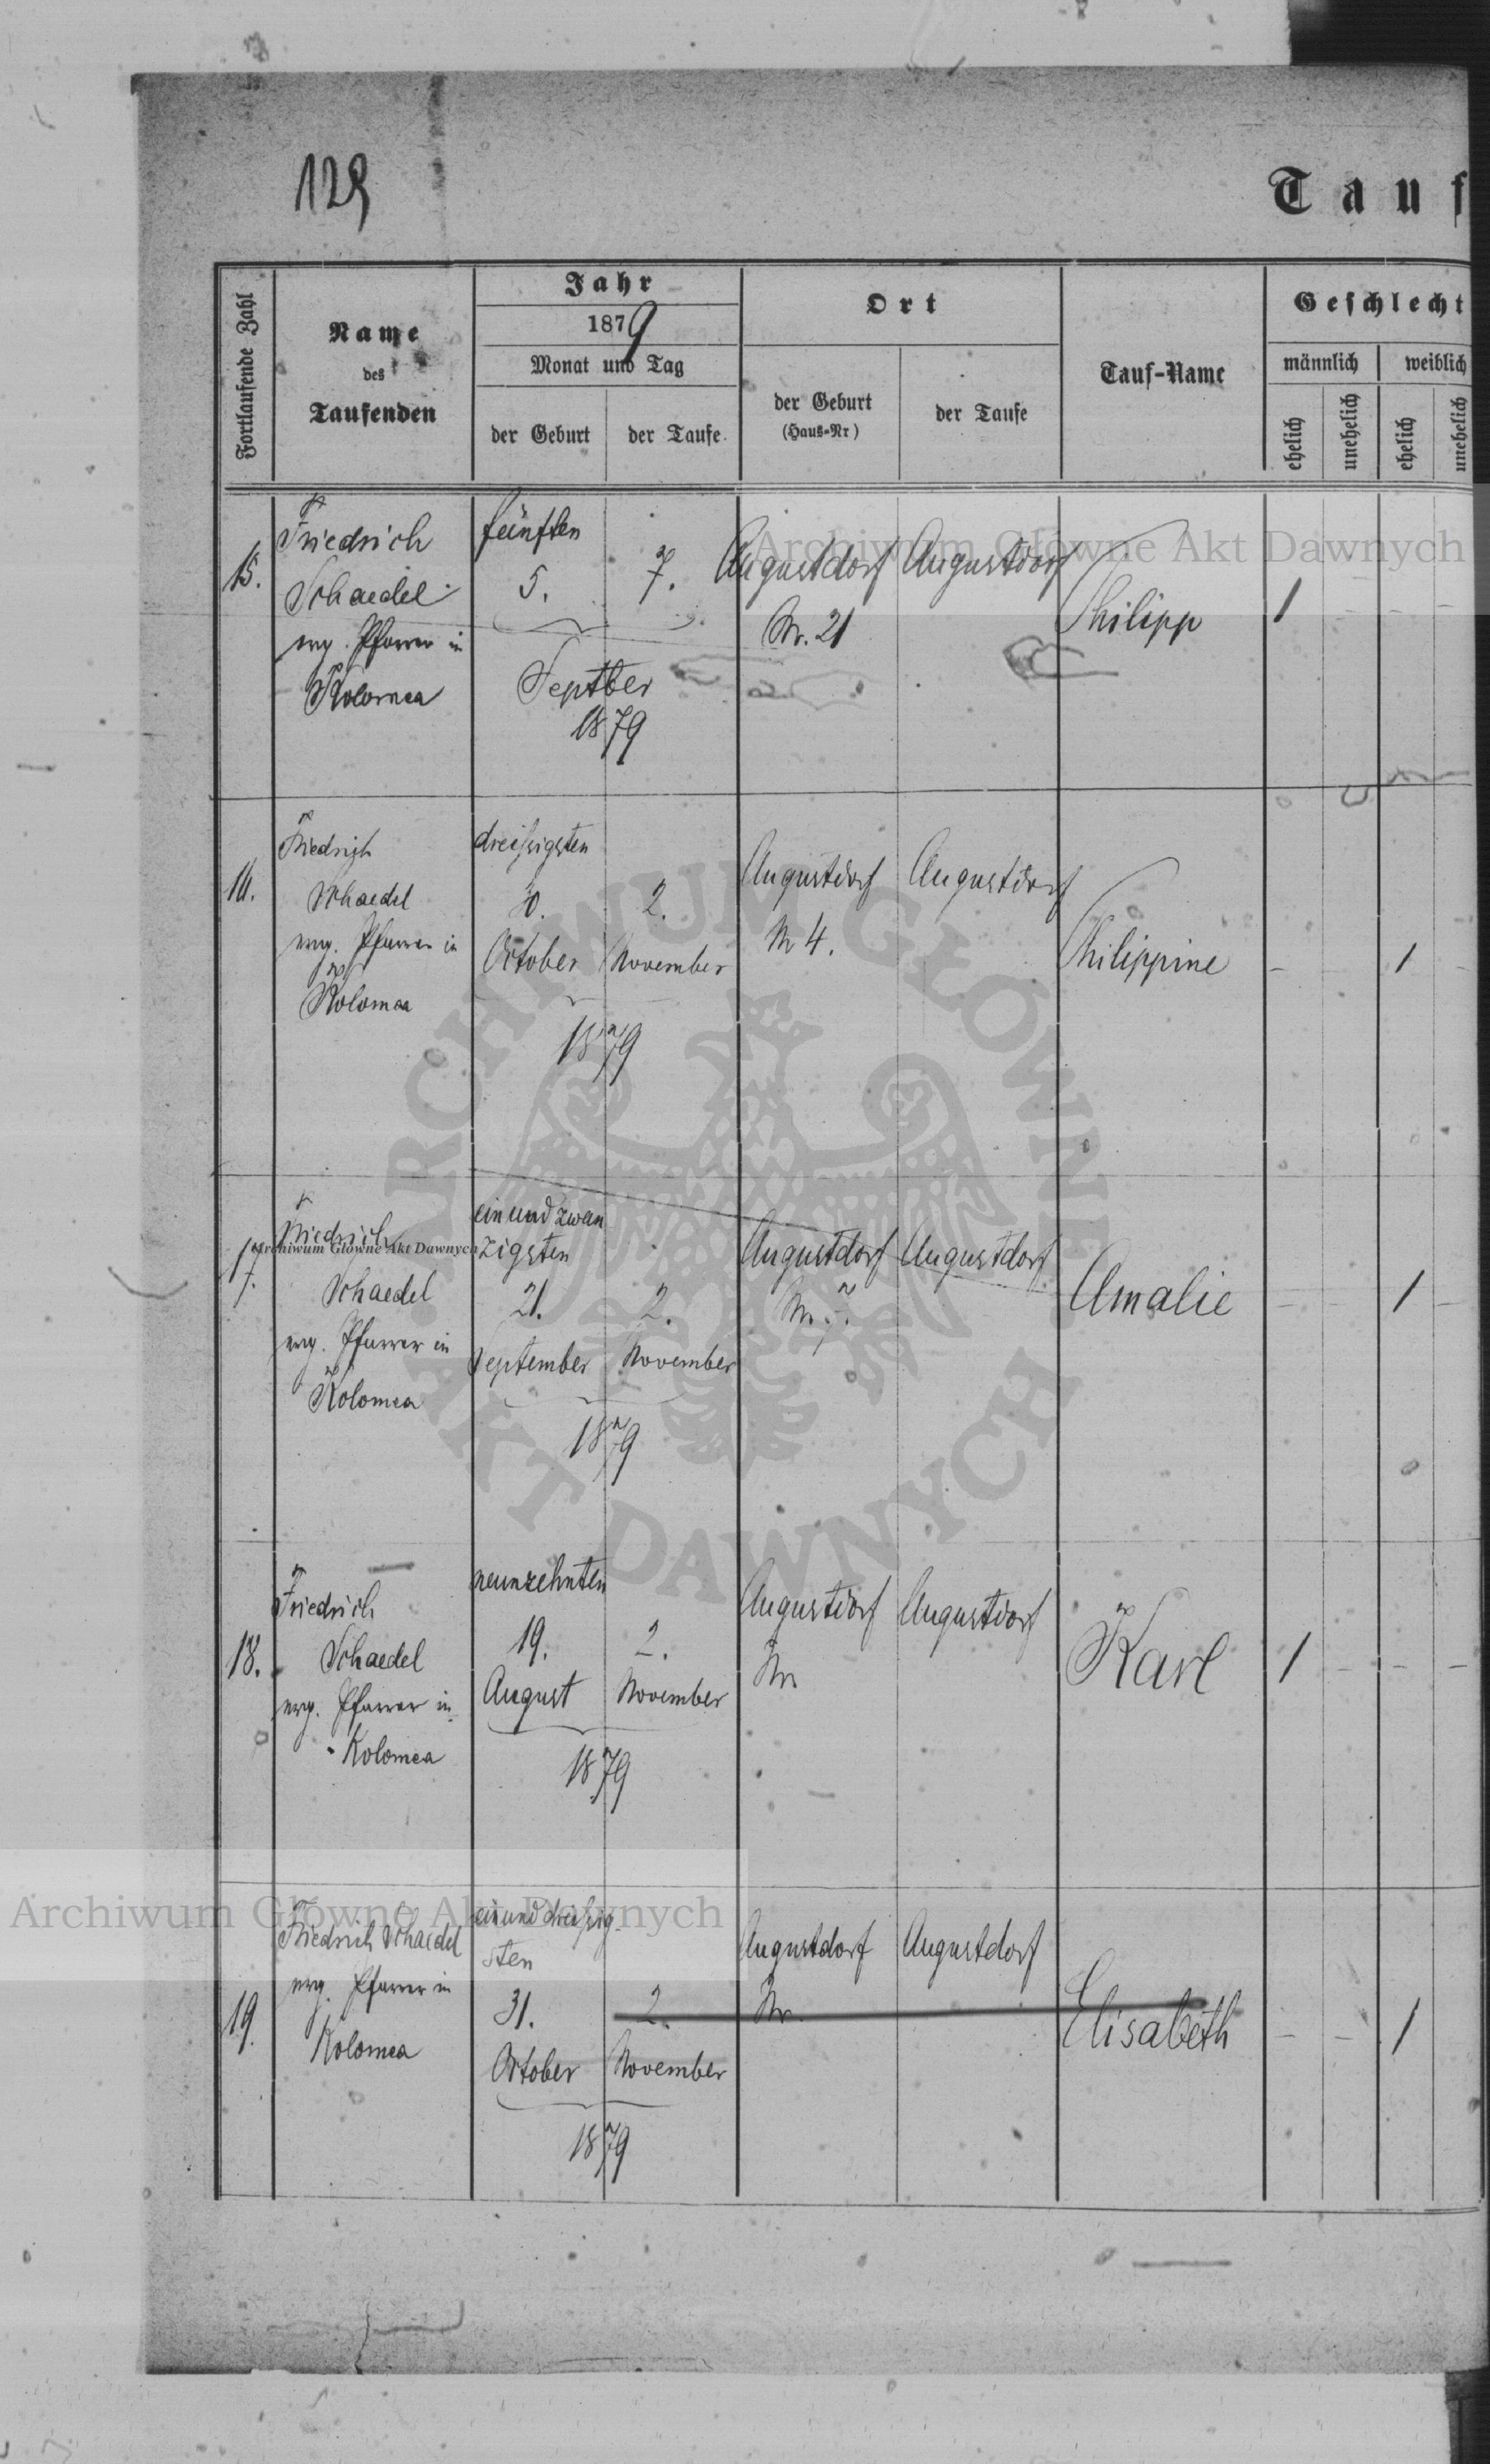 129
Tauf
Fortlaufende Zahl
Name
des
Taufenden
Jahr
1879
Monat und Tag
der Geburt
der Taufe
Ort
der Geburt
(Haus-Nr)
der Taufe
Tauf-Name
Geschlecht
männlich
weiblich
ehelich
unehelich
ehelich
unehelich
15.
Friedrich
Schaedel
evg. Pfarrer in
Kolomea
fünften
5.
7.
Septber
1879
Augustdorf
Nr. 21
Augustdorf
Philipp
1
16.
Friedrich
Schaedel
evg. Pfarrer in
Kolomea
dreißigsten
30.
October
2.
November
1879
Augustdorf
Nr 4.
Augustdorf
Philippine
1
17.
Friedrich
Schaedel
evg. Pfarrer in
Kolomea
einundzwan
zigsten
21.
September
2.
November
1879
Augustdorf
Nr. 7.
Augustdorf
Amalie
1
18.
Friedrich
Schaedel
evg. Pfarrer in
Kolomea
neunzehnten
19.
August
2.
November
1879
Augustdorf
Nr
Augustdorf
Karl
1
19.
Friedrich Schaedel
evg. Pfarrer in
Kolomea
einunddreißig-
sten
31.
October
2.
November
1879
Augustdorf
Nr.
Augustdorf
Elisabeth
1
Archiwum Główne Akt Dawnych
Archiwum Główne Akt Dawnych
Archiwum Główne Akt Dawnych
ARCHIWUM GŁÓWNE
AKT DAWNYCH